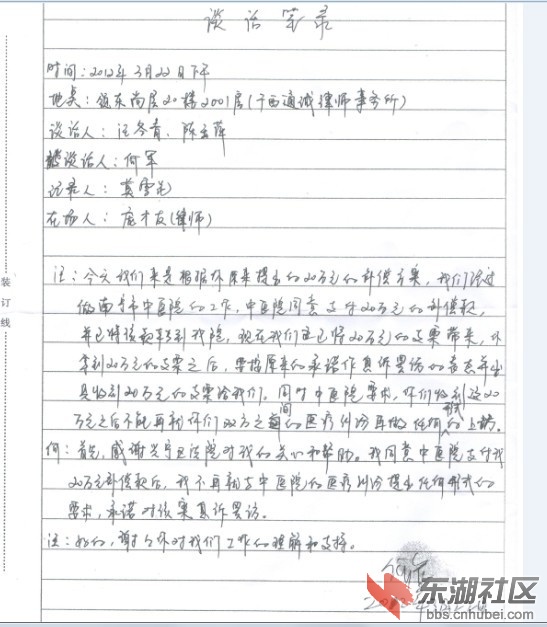 谈话笔录
时间：2012年3月22日下午
地点：领东尚层20楼2001房（广西通诚律师事务所）
谈话人：汪冬青、陈玉萍
谈话人：何军
记录人：黄雪花
在场人：庞才友（律师）
汪：今天我们来是根据你原来提出的20万元的补偿方案，我们经过
做南宁市中医院的工作，中医院同意支付20万元的补偿款，
并已将该款转到我院，现在我们也已将20万元的支票带来，你
拿到20万元的支票之后，要按原来的承诺作息诉罢访的书面并出
具收到20万元的支票给我们，同时中医院要求，你们收到这20
万元之后不能再就你们双方之间的医疗纠纷再做任何形式的上访。
何：首先，感谢兴宁区法院对我的关心和帮助。我同意中医院支付我
20万元补偿款后，我不再就与中医院的医疗纠纷提出任何形式的
要求，承诺对该案息诉罢访。
汪：好的，谢谢你对我们工作的理解和支持。
装
订
线
东湖社区
bbs.cnhubei.com